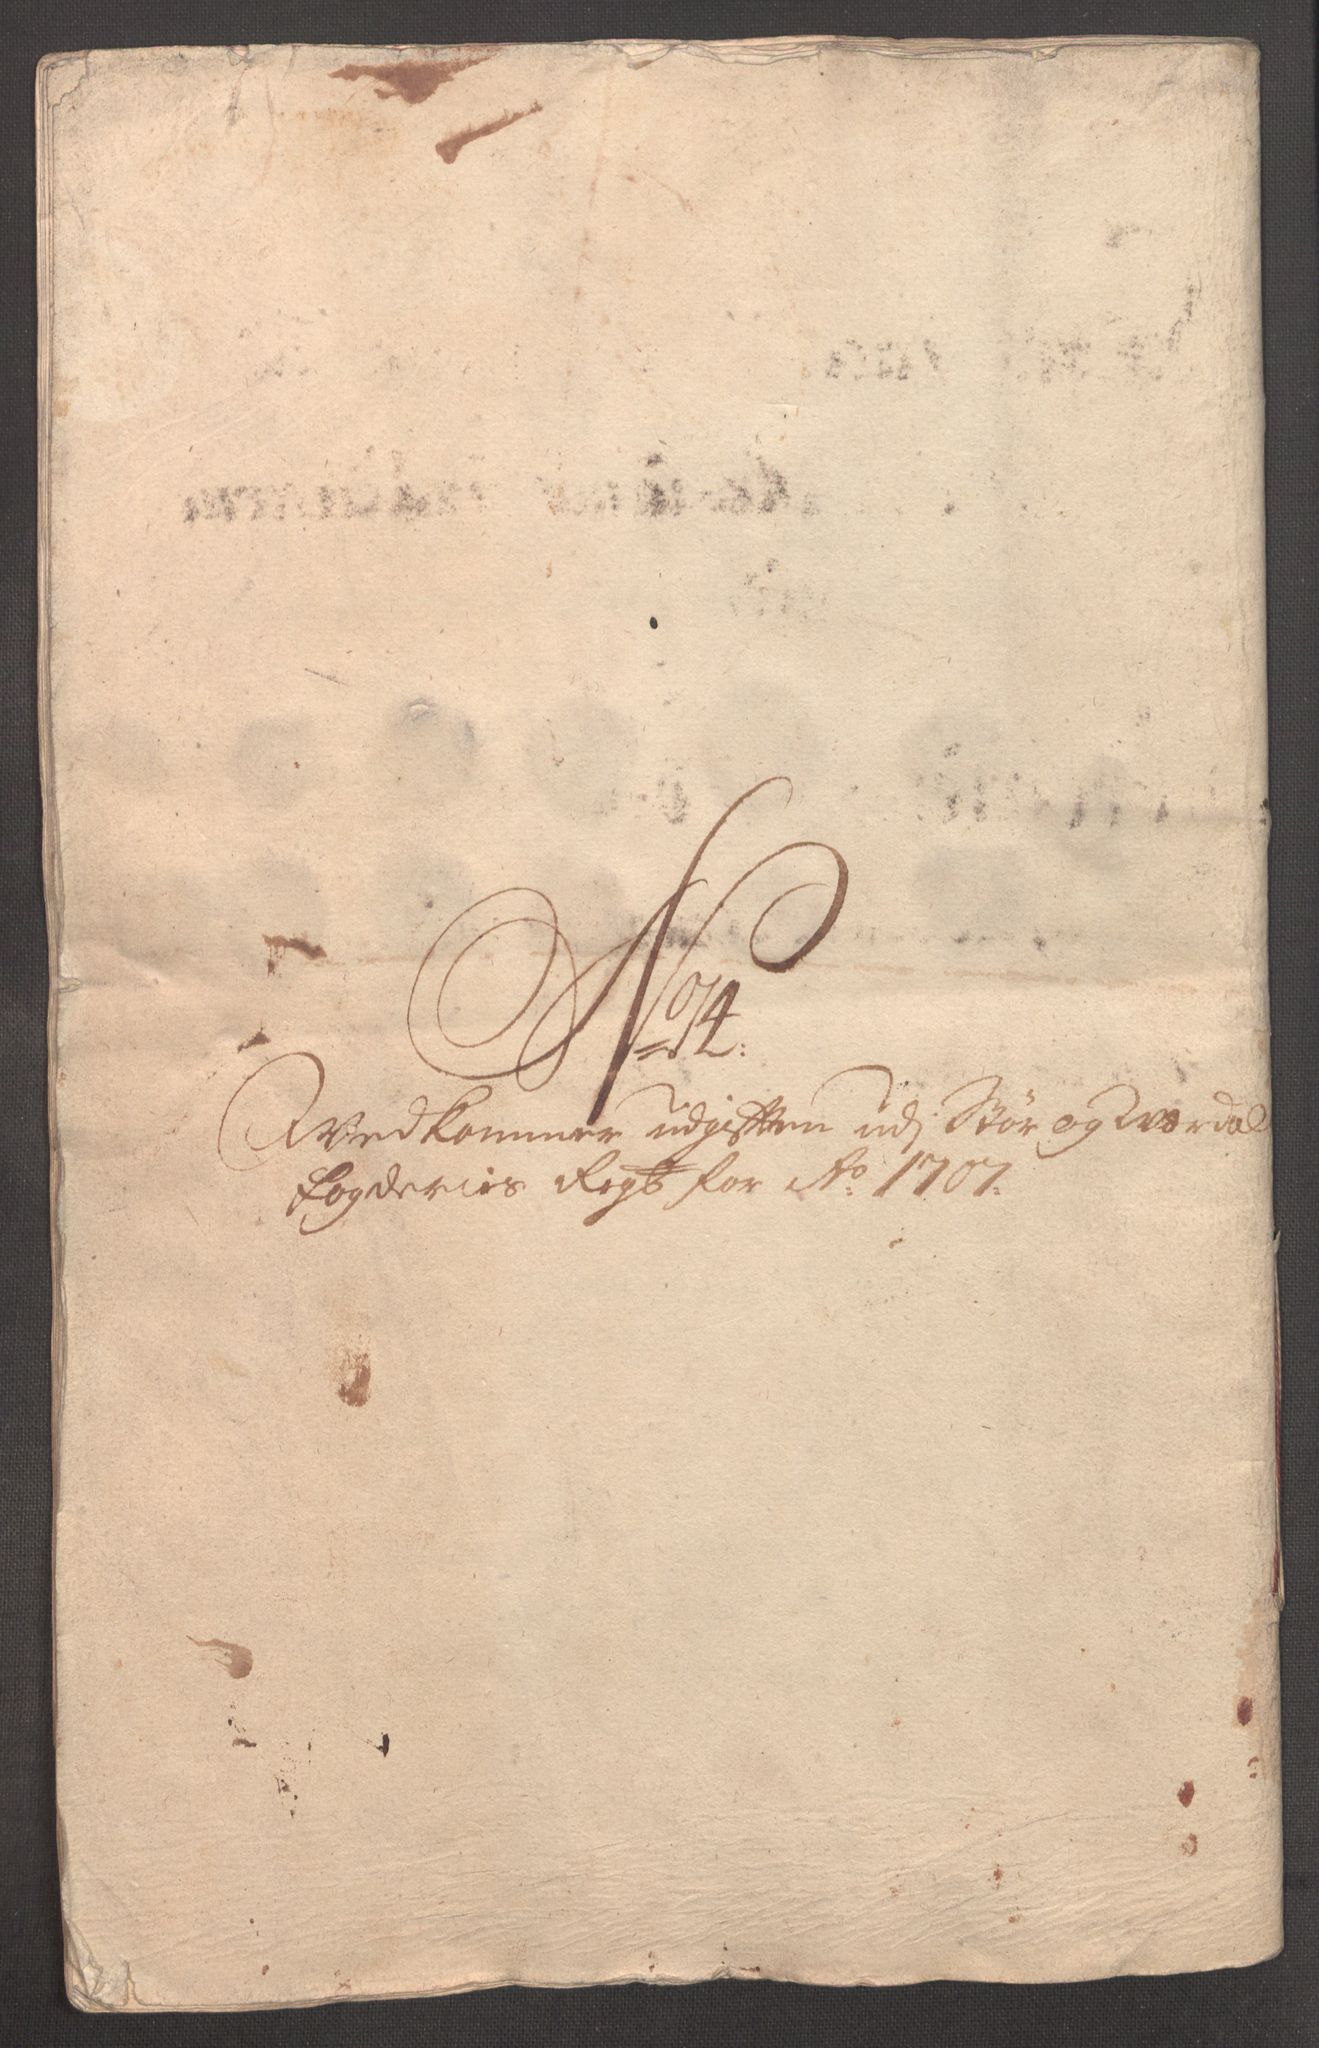 No 4:
Vedkommer udgifften udj Stør og Værdal
fogderies Regb for Ao 1707: